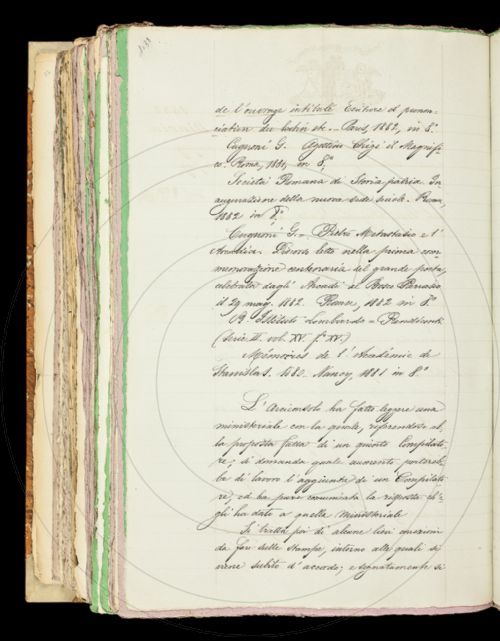 de l'ouvrage intitulé Ecriture et pronon-
ciation du latin etc. - Paris, 1882, in 8.°
Cugnoni G. Agostino Chigi il Magnifi-
co. Roma, 1881, in 8.°
Società Romana di Storia patria. In
augurazione della nuova sede sociale. Roma,
1882 in 8.°
Cugnoni G. - Pietro Metastasio e l'
Arcadia. Discorso letto nella prima com-
memorazione centenaria del grande poeta
celebrata dagli Arcadi al Bosco Parrasio
il 29 mag. 1882. Roma, 1882 in 8.°
R. Istituto Lombardo - Rendiconti.
(Serie II. vol. XV. f. XV.)
Mémoires de l'Académie de
Stanislas. 1882. Nancy, 1881 in 8.°
L'Arciconsolo ha fatto leggere una
ministeriale con la quale, riferendosi al
la proposta fatta di un quinto Compilato-
re, si domanda quale aumento portereb-
be di lavoro l'aggiunta di un Compilato
re, ed ha pure comunicata la risposta ch'e-
gli ha dato a quella ministeriale
Si tratta poi di alcune lievi
da farsi nelle stampe, intorno alle quali si
viene subito d'accordo; e segnatamente si